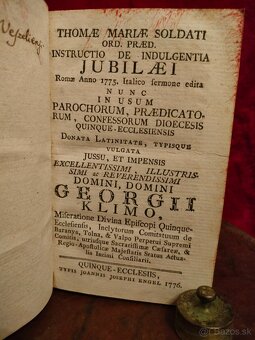 THOMÆ MARIÆ SOLDATI
ORD. PRÆD.
INSTRUCTIO DE INDULGENTIA
JUBILÆI
Romæ Anno 1775. Italico sermone edita
NUNC
IN USUM
PAROCHORUM, PRÆDICATO-
RUM, CONFESSORUM DIOECESIS
QUINQUE-ECCLESIENSIS
DONATA LATINITATE, TYPISQUE
VULGATA
JUSSU, ET IMPENSIS
EXCELLENTISSIMI ILLUSTRIS-
SIMI ac REVERENDISSIMI
DOMINI, DOMINI
GEORGII
KLIMO,
Miseratione Divina Episcopi Quinque-
Ecclesiensis, Inclytorum Comitatuum de
Baranya, Tolna, & Valpo Perpetui Supremi
Comitis, utriusque Sacratissimæ Cæsareæ, &
Regio-Apostolicæ Majestatis Status Actua-
lis Intimi Consiliarii.
QUINQUE-ECCLESIIS,
TYPIS JOANNIS JOSEPHI ENGEL 1776.
bazos.sk